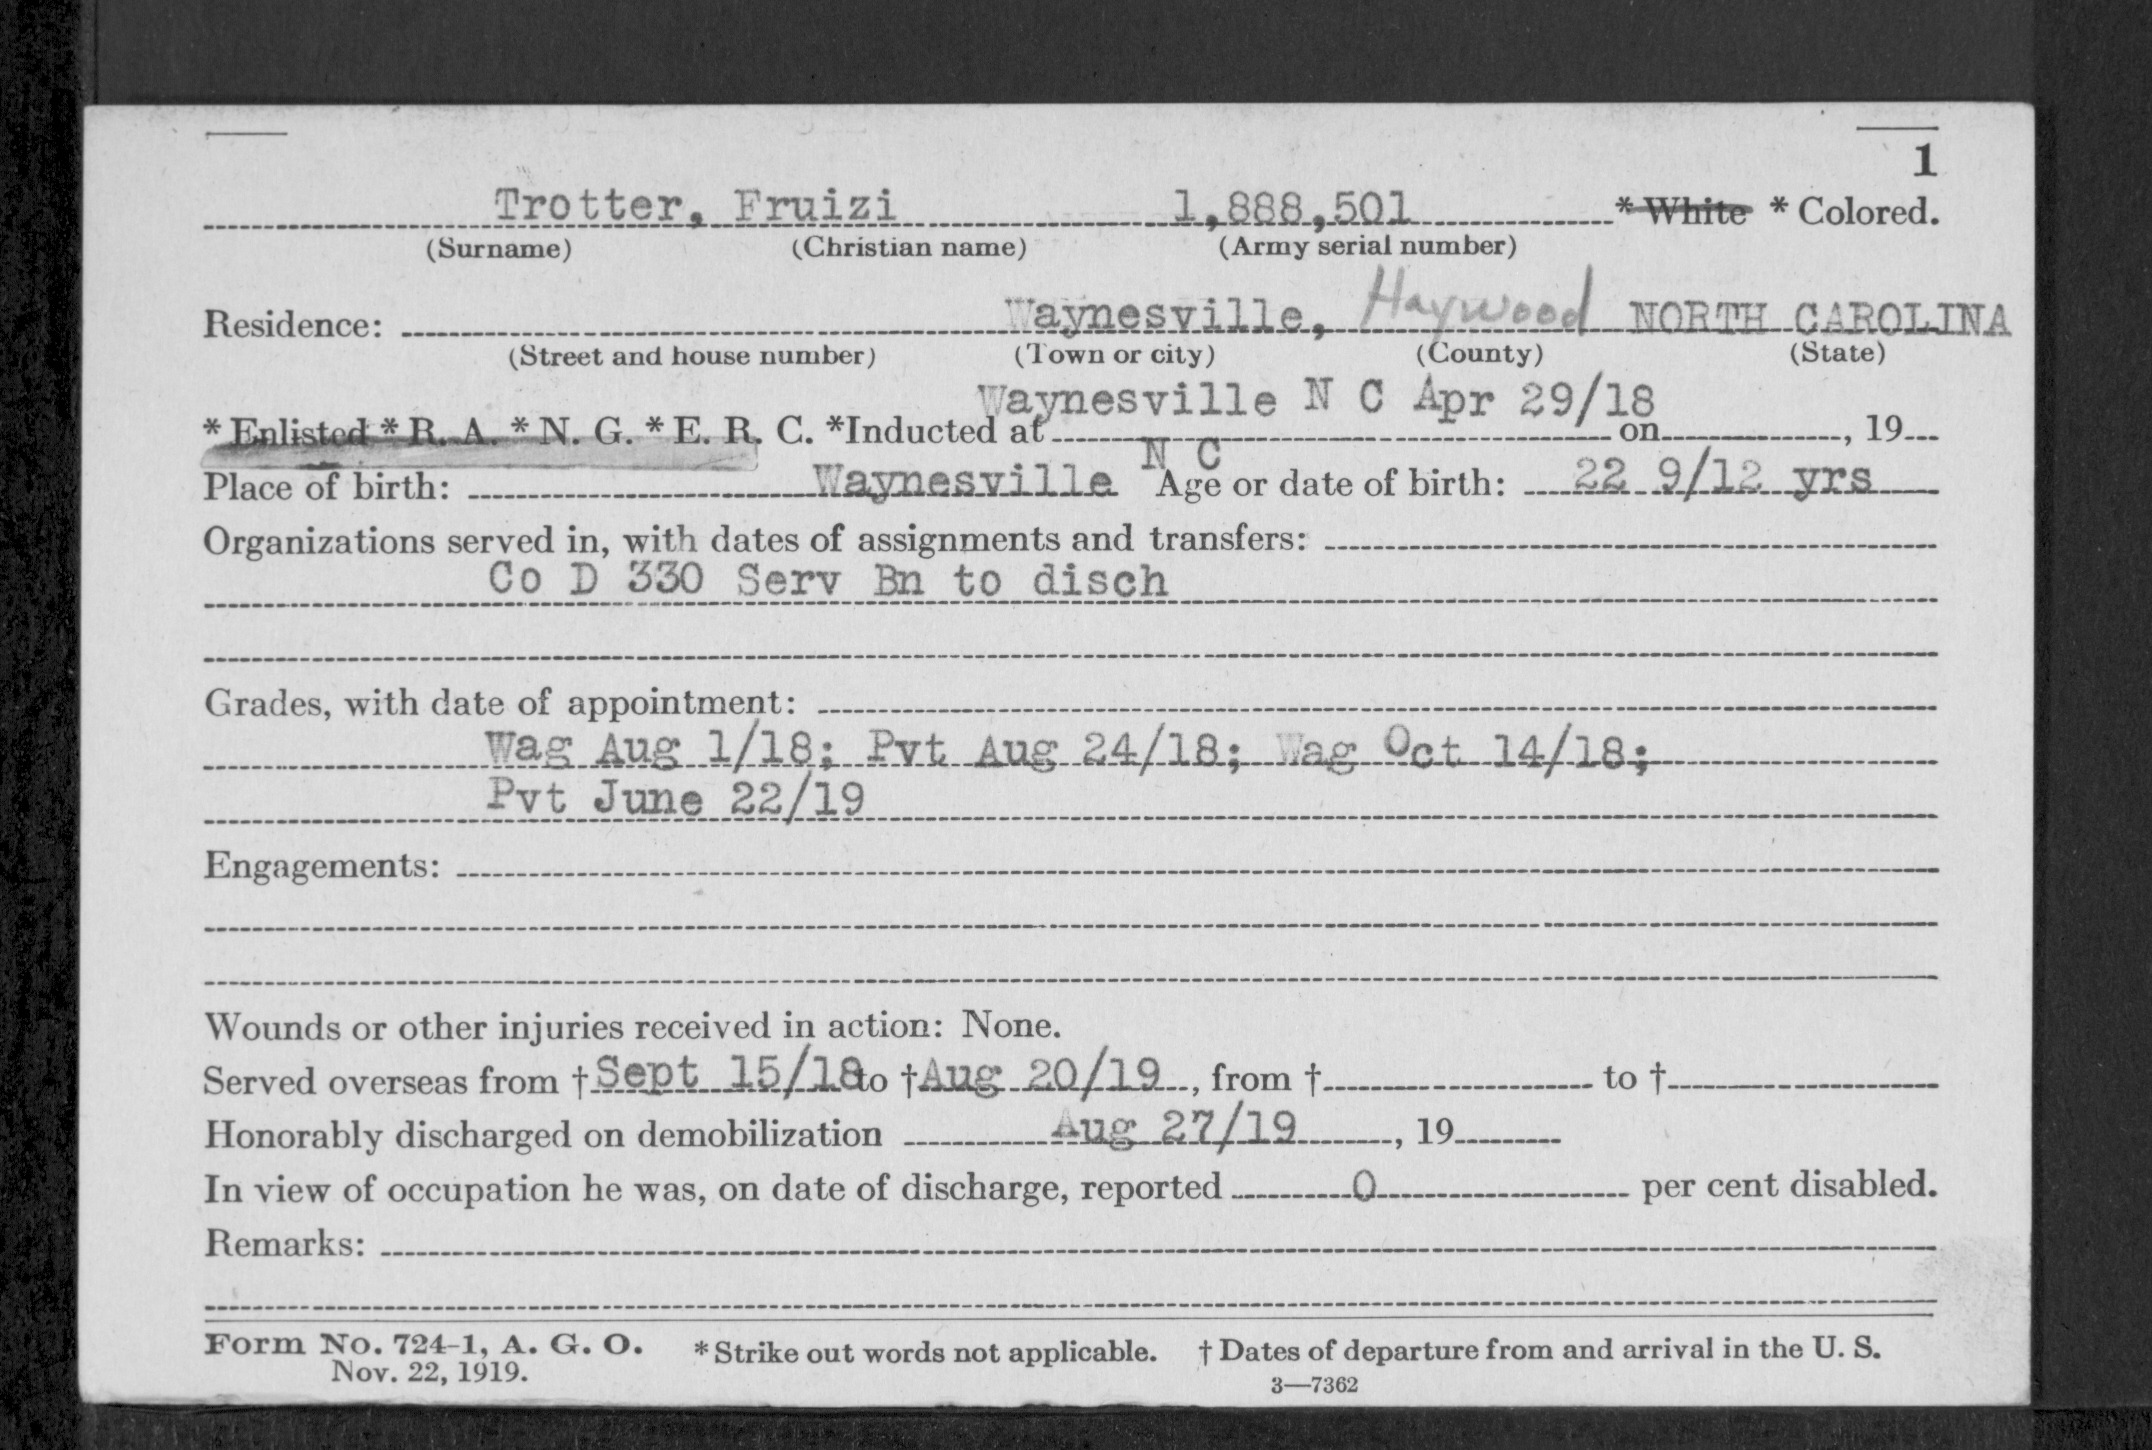 1
Trotter, Fruizi 1,888,501 * White * Colored.
(Surname) (Christian name) (Army serial number)
Residence: Waynesville, Haywood NORTH CAROLINA
(Street and house number) (Town or city) (County) (State)
Waynesville N C Apr 29/18
* Enlisted * R. A. * N. G. * E. R. C. *Inducted at on , 19
N C
Place of birth: Waynesville Age or date of birth: 22 9/12 yrs
Organizations served in, with dates of assignments and transfers:
Co D 330 Serv Bn to disch
Grades, with date of appointment:
Wag Aug 1/18; Pvt Aug 24/18; Wag Oct 14/18;
Pvt June 22/19
Engagements:
Wounds or other injuries received in action: None.
Served overseas from † Sept 15/18 to † Aug 20/19 , from † to †
Honorably discharged on demobilization Aug 27/19 , 19
In view of occupation he was, on date of discharge, reported 0 per cent disabled.
Remarks:
Form No. 724-1, A. G. O. * Strike out words not applicable. † Dates of departure from and arrival in the U. S.
Nov. 22, 1919.
3—7362